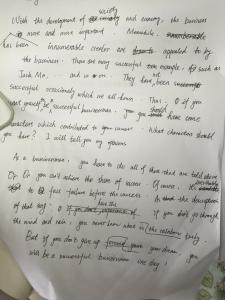 With the development of society and economy, the business
is more and more important. Meanwhile,
has been innumerable are appealed to by
the bussiness. There are very successful example, such as
Jack Ma, and so on. They have been
successful consciously which we all down. Thus, if you
want yourself be successful businessman, you should have come
characters which contributed to you career. What characters should
you have? I will tell you my opinions.
As a businessman, you have to do all of that and are told above
Or you can't achieve the of success. Of course, it's
to face failure before the success. In the description
of that self. if you don't go through
the wind and rain, you never know what is the rainbow truly.
But if you don't give up your dream, you
will be a powerful businessman one day!